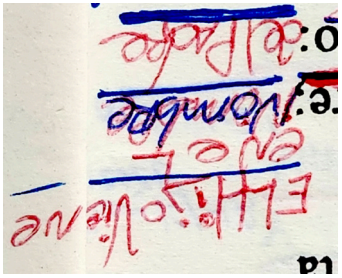 ta
El Hijo Viene
en el
Nombre
re:
del Padre
o: